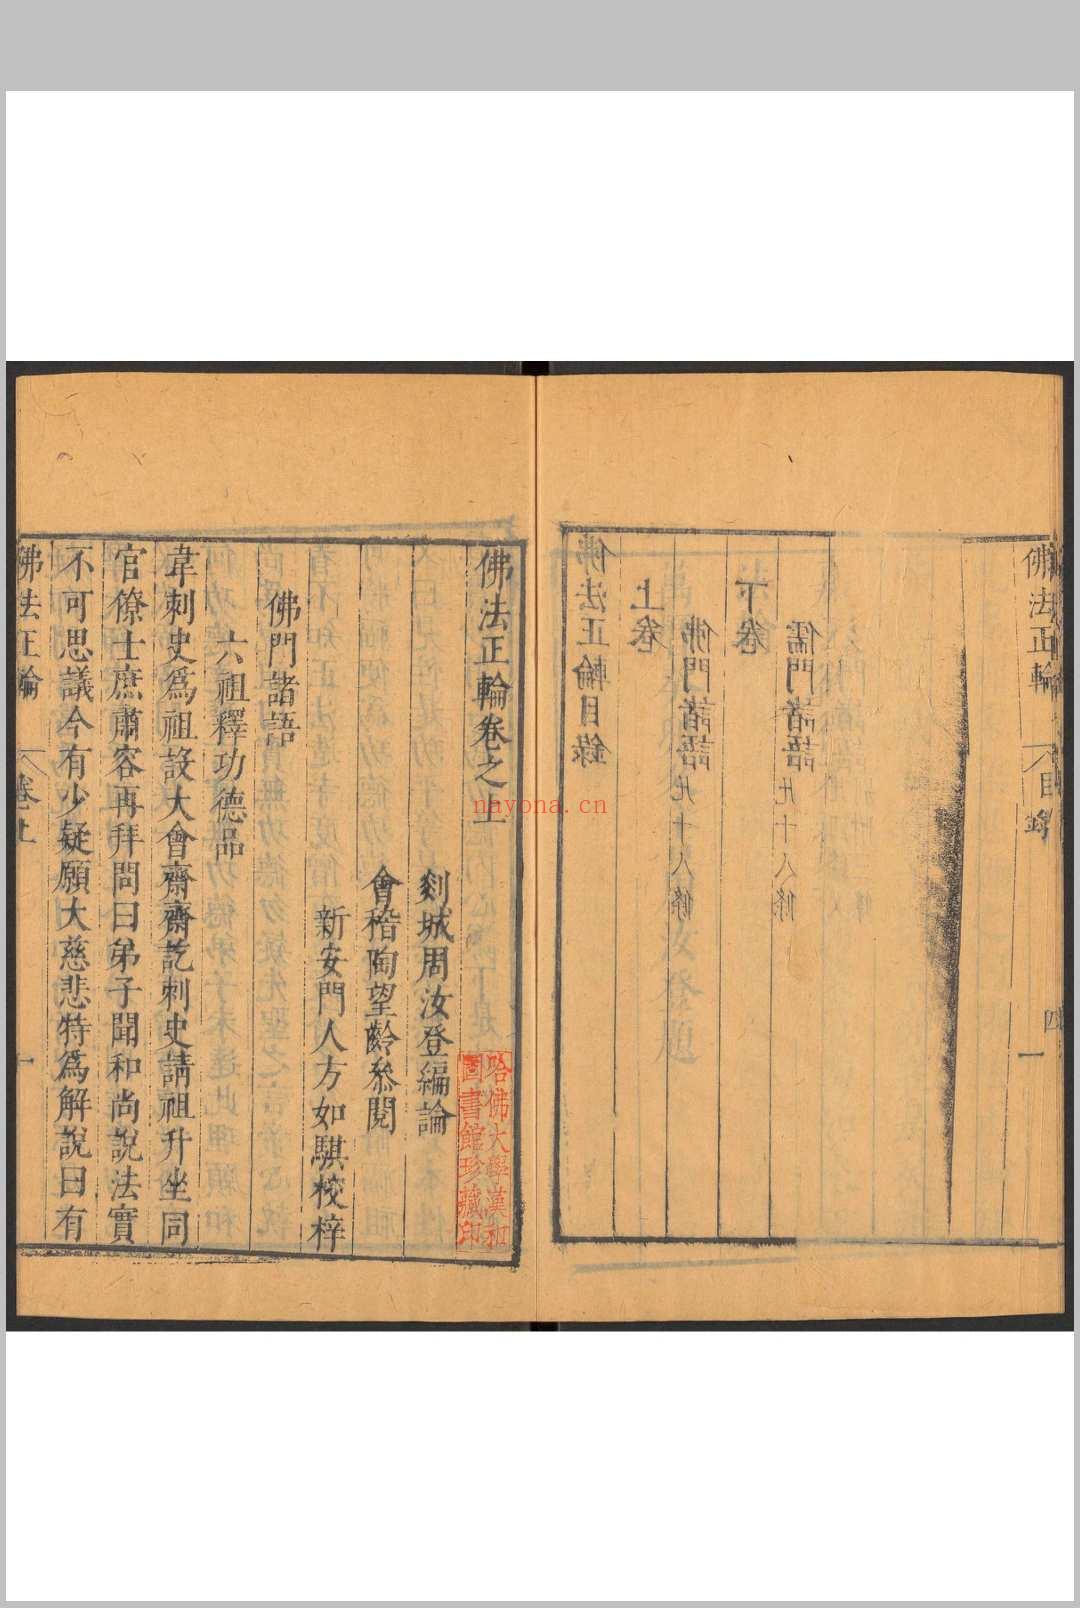 佛法正輪
目錄
四
一
佛法正輪目錄
上卷
佛門諸語九十八條
下卷
儒門諸語九十八條
佛法正輪卷之上
剡城周汝登編論
會稽陶望齡叅閱
新安門人方如騏校梓
佛門諸語
六祖釋功德品
韋刺史爲祖設大會齋齋訖刺史請祖升坐同
官僚士庶肅容再拜問曰弟子聞和尚說法實
不可思議今有少疑願大慈悲特爲解說曰有
佛法正輪
卷上
一
哈佛大學漢和
圖書館珍藏印
nayona.cn